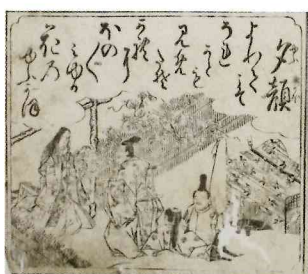 夕顔
よりてこそ
それか
とも
見め
たそ
かれに
ほの
〲
みつる
花の
ゆふがほ